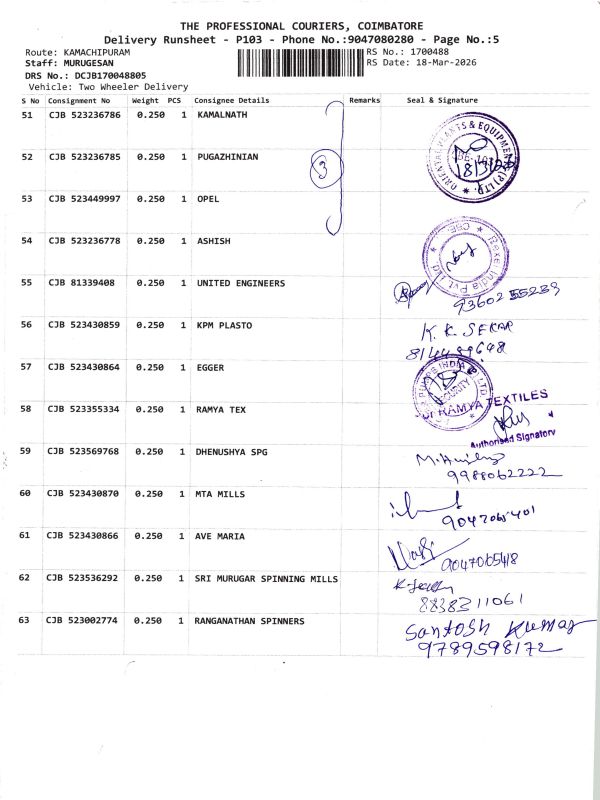 THE PROFESSIONAL COURIERS, COIMBATORE
Delivery Runsheet - P103 - Phone No.:9047080280 - Page No.:5
Route: KAMACHIPURAM RS No.: 1700488
Staff: MURUGESAN RS Date: 18-Mar-2026
DRS No.: DCJB170048805
Vehicle: Two Wheeler Delivery
S No Consignment No Weight PCS Consignee Details Remarks Seal & Signature
51 CJB 523236786 0.250 1 KAMALNATH
ORIENTAL PLANTS & EQUIPMENT (P) LTD.
52 CJB 523236785 0.250 1 PUGAZHINIAN
3
53 CJB 523449997 0.250 1 OPEL
54 CJB 523236778 0.250 1 ASHISH
Rexel India Pvt Ltd. CBE
55 CJB 81339408 0.250 1 UNITED ENGINEERS
93602 55239
56 CJB 523430859 0.250 1 KPM PLASTO
K. K. SEKAR
57 CJB 523430864 0.250 1 EGGER
PUMPS INDIA (P) LTD.
SECURITY
58 CJB 523355334 0.250 1 RAMYA TEX
RAMYA TEXTILES
Authorised Signatory
59 CJB 523569768 0.250 1 DHENUSHYA SPG
9988062222
60 CJB 523430870 0.250 1 MTA MILLS
9047065401
61 CJB 523430866 0.250 1 AVE MARIA
9047065418
62 CJB 523536292 0.250 1 SRI MURUGAR SPINNING MILLS
8838311061
63 CJB 523002774 0.250 1 RANGANATHAN SPINNERS
Santosh Kumar
9789598172